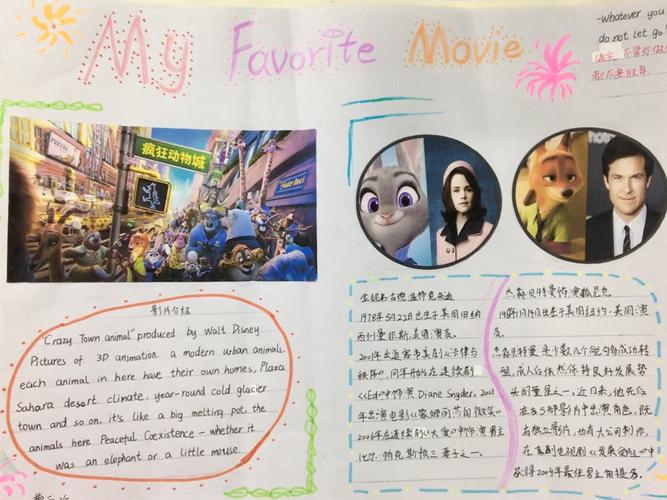 My Favorite Movie
-Whatever you
do not let go
都不要放弃.
疯狂动物城
影片介绍
"Crazy Town animal" produced by Walt Disney
Pictures of 3D animation. a modern urban animals.
each animal in here have their own homes, Plaza
Sahara desert climate, year-round cold glacier
town and so on, it's like a big melting pot, the
animals here Peaceful Coexistence - whether it
was an elephant or a little mouse.
1978年5月22出生于美国旧纳
西州曼菲斯,美国演员.
2001年出道客串美剧《法律与
秩序》,同年开始在连续剧
《Ed》中饰演 Diane Snyder, 2003
年出演电影《蒙娜丽莎的微笑》
2006年在连续剧《大爱》中饰演男主
比尔·帕克斯的三妻子之一.
杰森·贝特曼饰演狐尼克
1969年1月14日出生于美国纽约,美国演
员
杰森贝特曼是少数几个能够成功转
型,成人后依然保持良好发展势
头的童星之一,近日来,他先后
在35部影片中出演角色,既
有独立影片,也有大公司制作,
在喜剧电视剧《发展受阻》中
获得2004年最佳男主角提名.